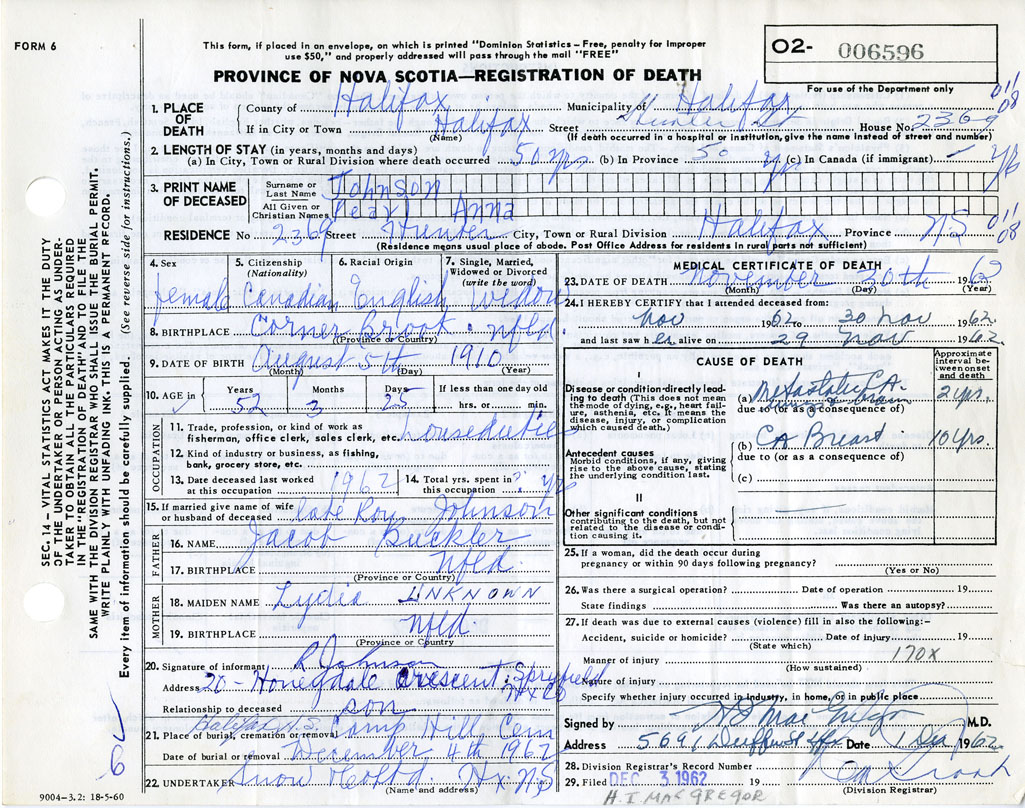 FORM 6
This form, if placed in an envelope, on which is printed "Dominion Statistics – Free, penalty for improper
use $50," and properly addressed will pass through the mail "FREE"
PROVINCE OF NOVA SCOTIA—REGISTRATION OF DEATH
02- 006596
For use of the Department only
SEC. 14 – VITAL STATISTICS ACT MAKES IT THE DUTY
OF THE UNDERTAKER OR PERSON ACTING AS UNDER-
TAKER TO OBTAIN ALL THE PARTICULARS REQUIRED
IN THE "REGISTRATION OF DEATH" AND TO FILE THE
SAME WITH THE DIVISION REGISTRAR WHO SHALL ISSUE THE BURIAL PERMIT.
WRITE PLAINLY WITH UNFADING INK. THIS IS A PERMANENT RECORD.
Every item of information should be carefully supplied. (See reverse side for instructions.)
1. PLACE OF DEATH
County of Halifax Municipality of Halifax 011 08
If in City or Town Halifax Street Hunter St House No. 2369
(Name) (If death occurred in a hospital or institution, give the name instead of street and number)
2. LENGTH OF STAY (in years, months and days)
(a) In City, Town or Rural Division where death occurred 50 yrs (b) In Province 50 yrs (c) In Canada (if immigrant) –
3. PRINT NAME OF DECEASED
Surname or Last Name Johnson
All Given or Christian Names Pearl Anna
RESIDENCE No 2369 Street Hunter City, Town or Rural Division Halifax Province NS 011 08
(Residence means usual place of abode. Post Office Address for residents in rural parts not sufficient)
4. Sex 5. Citizenship (Nationality) 6. Racial Origin 7. Single, Married, Widowed or Divorced (write the word)
female Canadian English Widow
8. BIRTHPLACE Corner Brook. Nfld.
(Province or Country)
9. DATE OF BIRTH August 5th 1910
(Month) (Day) (Year)
10. AGE in Years Months Days If less than one day old
52 3 25 hrs. or min.
OCCUPATION
11. Trade, profession, or kind of work as
fisherman, office clerk, sales clerk, etc. Houseduties
12. Kind of industry or business, as fishing,
bank, grocery store, etc.
13. Date deceased last worked at this occupation 1962 14. Total yrs. spent in this occupation ? yrs
15. If married give name of wife or husband of deceased late Roy Johnson
FATHER
16. NAME Jacob Buckler
17. BIRTHPLACE Nfld.
(Province or Country)
MOTHER
18. MAIDEN NAME Lydia UNKNOWN
19. BIRTHPLACE Nfld.
(Province or Country
20. Signature of informant R Johnson
Address 20 - Honeydale Crescent. Spryfield
Hx Co
Relationship to deceased son
Halifax N.S.
21. Place of burial, cremation or removal Camp Hill Cem
Date of burial or removal December 4th 1962
22. UNDERTAKER Snow & Co Ltd. Hx. NS
(Name and address)
6
9004–3.2: 18-5-60
MEDICAL CERTIFICATE OF DEATH
23. DATE OF DEATH November 30th 1962
(Month) (Day) (Year)
24. I HEREBY CERTIFY that I attended deceased from:
Nov 1962 to 30 Nov 1962.
and last saw her alive on 29 Nov 1962.
CAUSE OF DEATH
Approximate interval between onset and death
I
Disease or condition directly lead-
ing to death (This does not mean
the mode of dying, e.g., heart fail-
ure, asthenia, etc. It means the
disease, injury, or complication
which caused death.)
(a) Metastatic CA. brain 2 yrs.
due to (or as a consequence of)
Antecedent causes
Morbid conditions, if any, giving
rise to the above cause, stating
the underlying condition last.
(b) CA Breast. 10 yrs.
due to (or as a consequence of)
(c)
II
Other significant conditions
contributing to the death, but not
related to the disease or condi-
tion causing it.
25. If a woman, did the death occur during
pregnancy or within 90 days following pregnancy?
(Yes or No)
26. Was there a surgical operation? Date of operation 19
State findings Was there an autopsy?
27. If death was due to external causes (violence) fill in also the following:–
Accident, suicide or homicide? Date of injury 19
(State which)
Manner of injury 170X
(How sustained)
Nature of injury
Specify whether injury occurred in industry, in home, or in public place
Signed by H I MacGregor M.D.
Address 5691 Duffus St Hfx Date 1 Dec 1962
28. Division Registrar's Record Number
29. Filed DEC 3 1962 19
(Division Registrar)
H. I. MACGREGOR